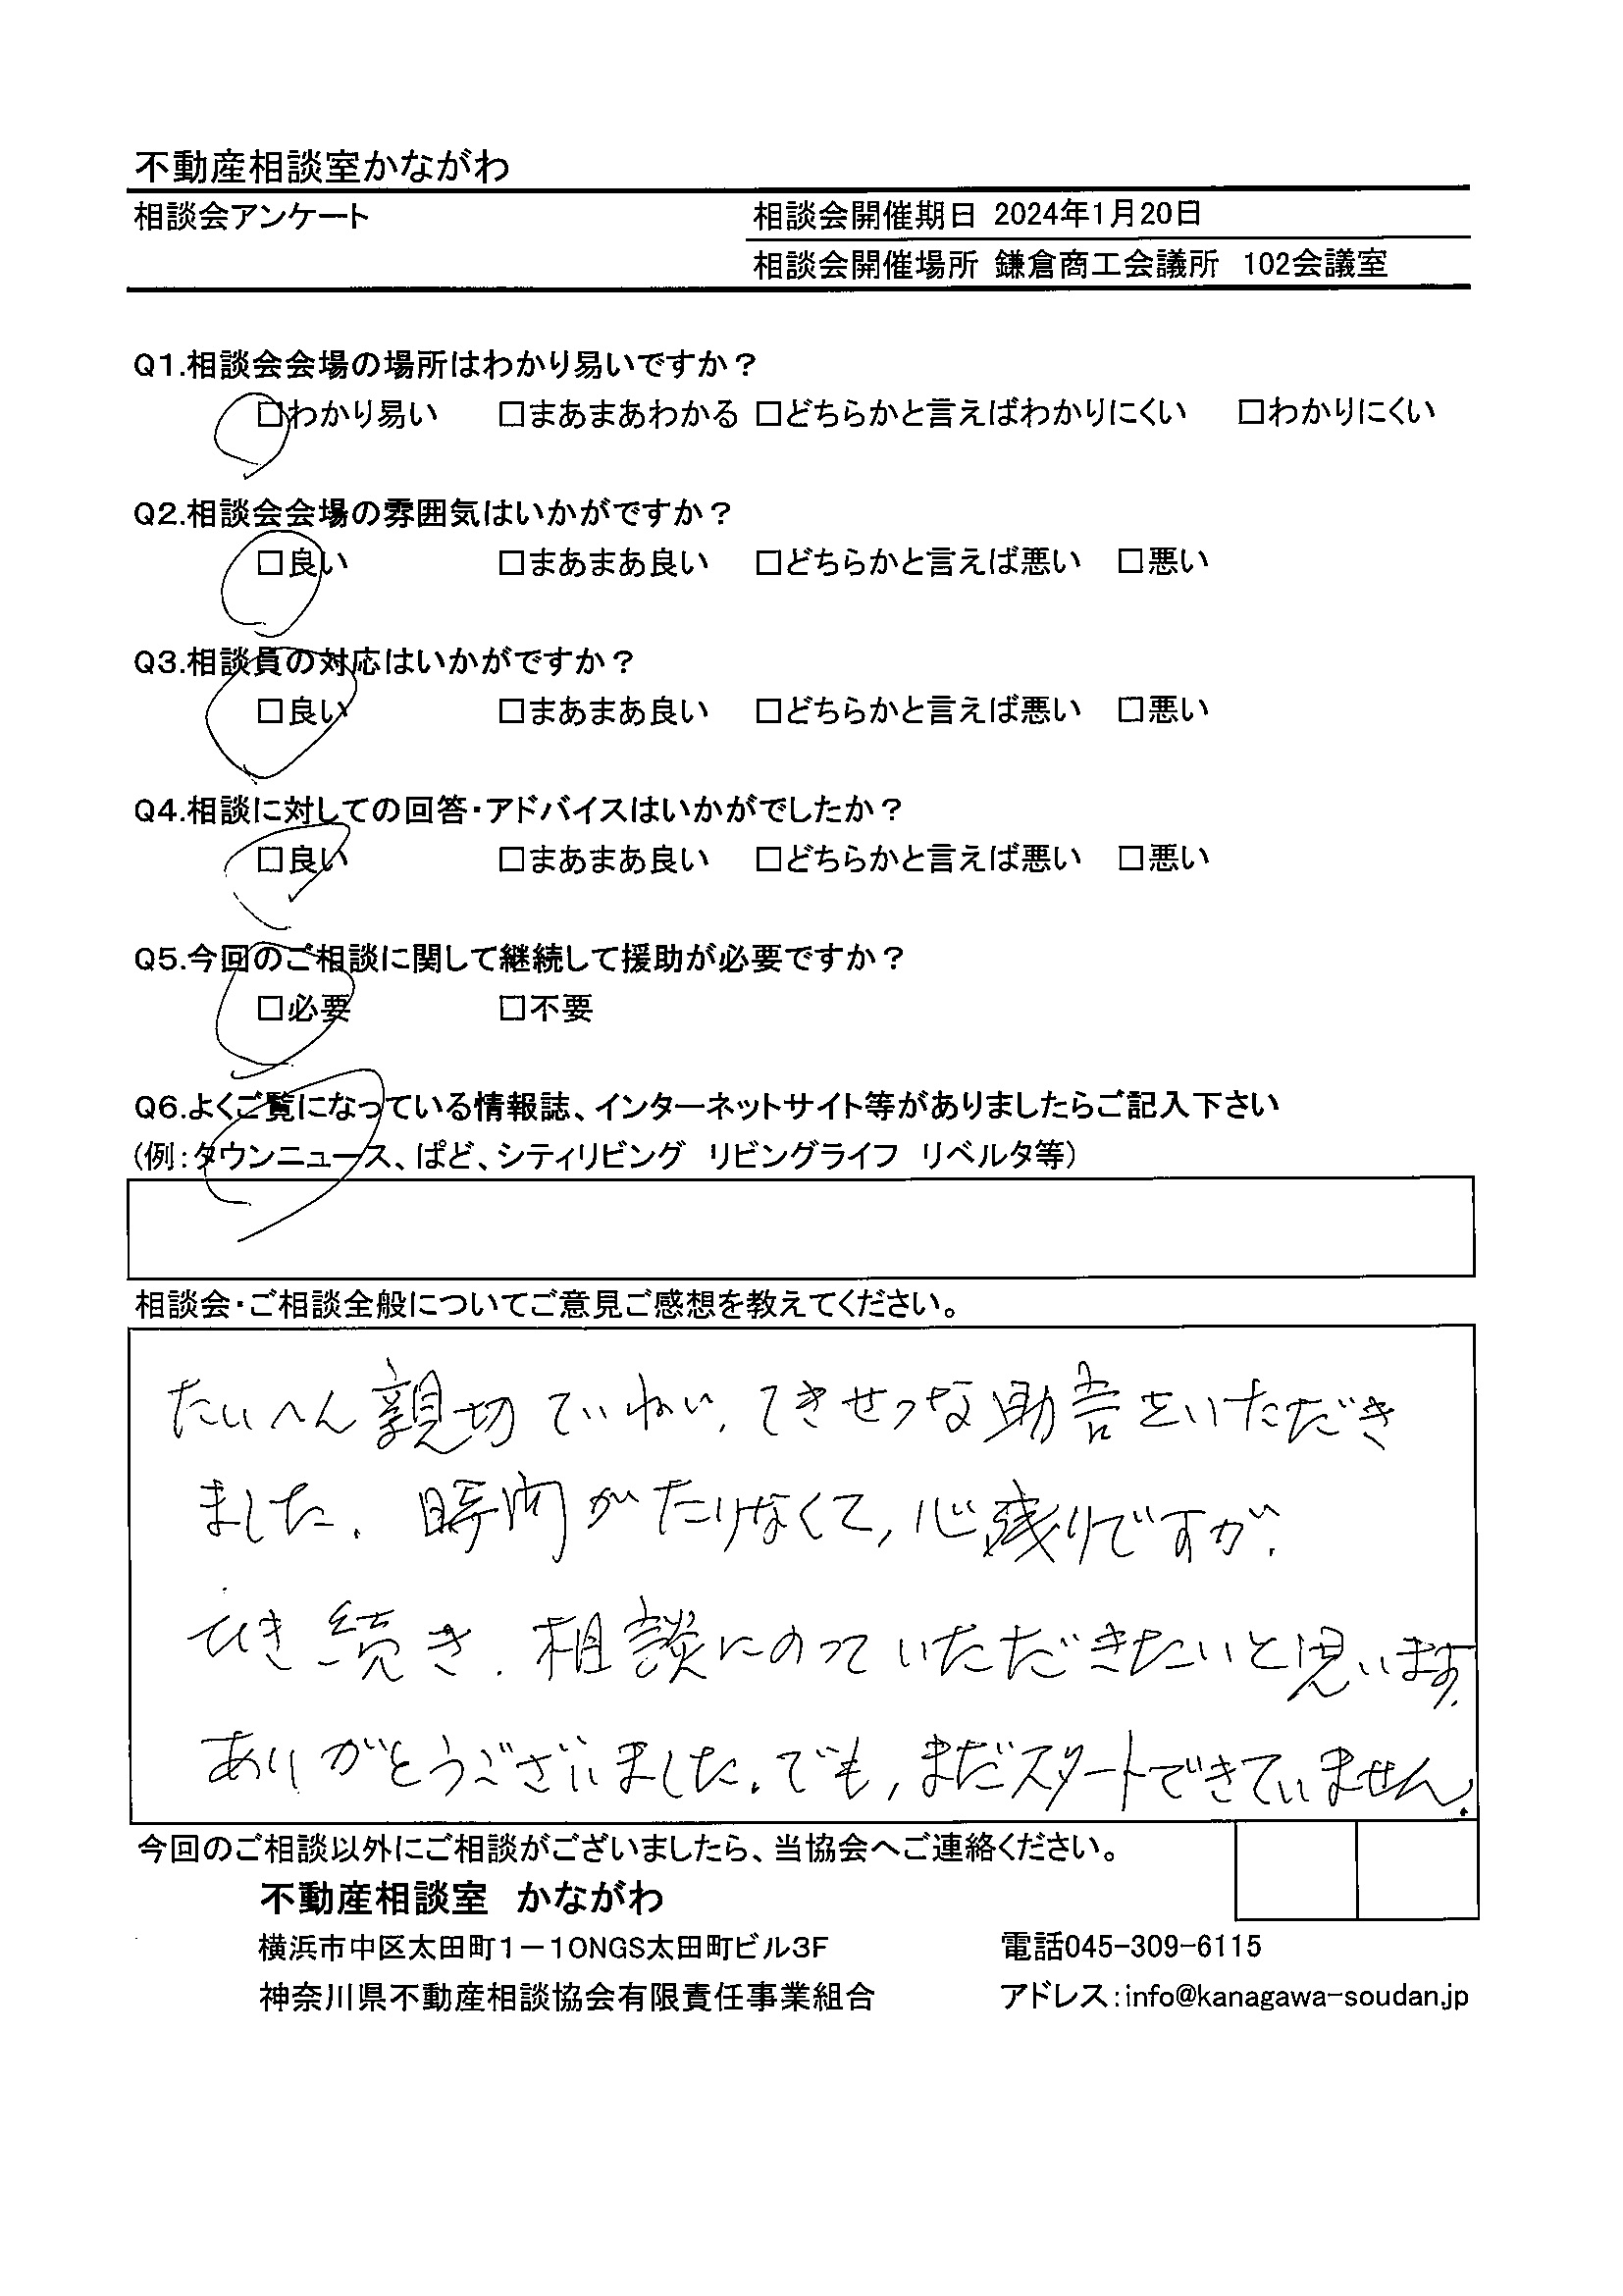 不動産相談室かながわ
相談会アンケート
相談会開催期日 2024年1月20日
相談会開催場所 鎌倉商工会議所 102会議室
Q1.相談会会場の場所はわかり易いですか？
□わかり易い □まあまあわかる □どちらかと言えばわかりにくい □わかりにくい
Q2.相談会会場の雰囲気はいかがですか？
□良い □まあまあ良い □どちらかと言えば悪い □悪い
Q3.相談員の対応はいかがですか？
□良い □まあまあ良い □どちらかと言えば悪い □悪い
Q4.相談に対しての回答・アドバイスはいかがでしたか？
□良い □まあまあ良い □どちらかと言えば悪い □悪い
Q5.今回のご相談に関して継続して援助が必要ですか？
□必要 □不要
Q6.よくご覧になっている情報誌、インターネットサイト等がありましたらご記入下さい
(例：タウンニュース、ぱど、シティリビング リビングライフ リベルタ等)
相談会・ご相談全般についてご意見ご感想を教えてください。
たいへん親切ていねい、てきせつな助言をいただき
ました。時間がたりなくて、心残りですが、
ひき続き、相談にのっていただきたいと思います。
ありがとうございました。でも、まだスタートできていません。
今回のご相談以外にご相談がございましたら、当協会へご連絡ください。
不動産相談室 かながわ
横浜市中区太田町1－10NGS太田町ビル3F
電話045-309-6115
神奈川県不動産相談協会有限責任事業組合
アドレス：info@kanagawa-soudan.jp